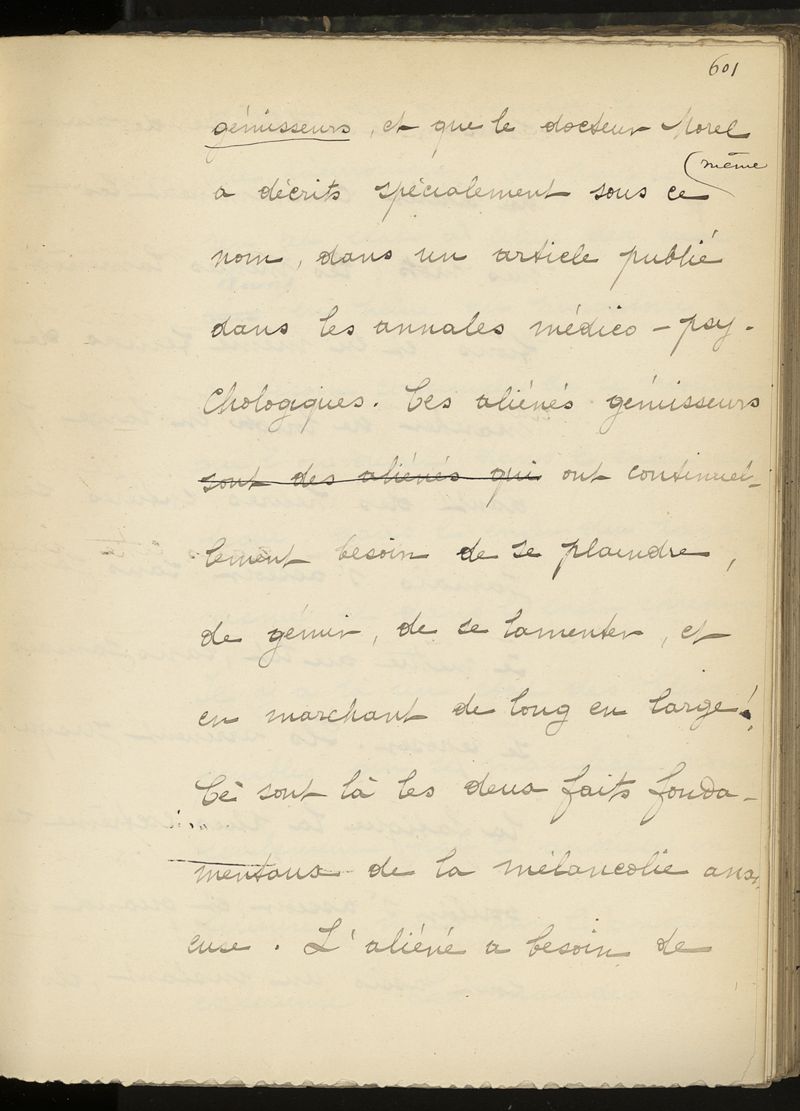 601
gémisseurs, et que le docteur Morel
même
a décrits spécialement sous ce
nom, dans un article publié
dans les annales médico-psy-
chologiques. Ces aliénés gémisseurs
sont des aliénés qui ont continuel-
lement besoin de se plaindre,
de gémir, de se lamenter, et
en marchant de long en large!
Ce sont là les deux faits fonda-
mentaux de la mélancolie anxi-
euse. L'aliéné a besoin de